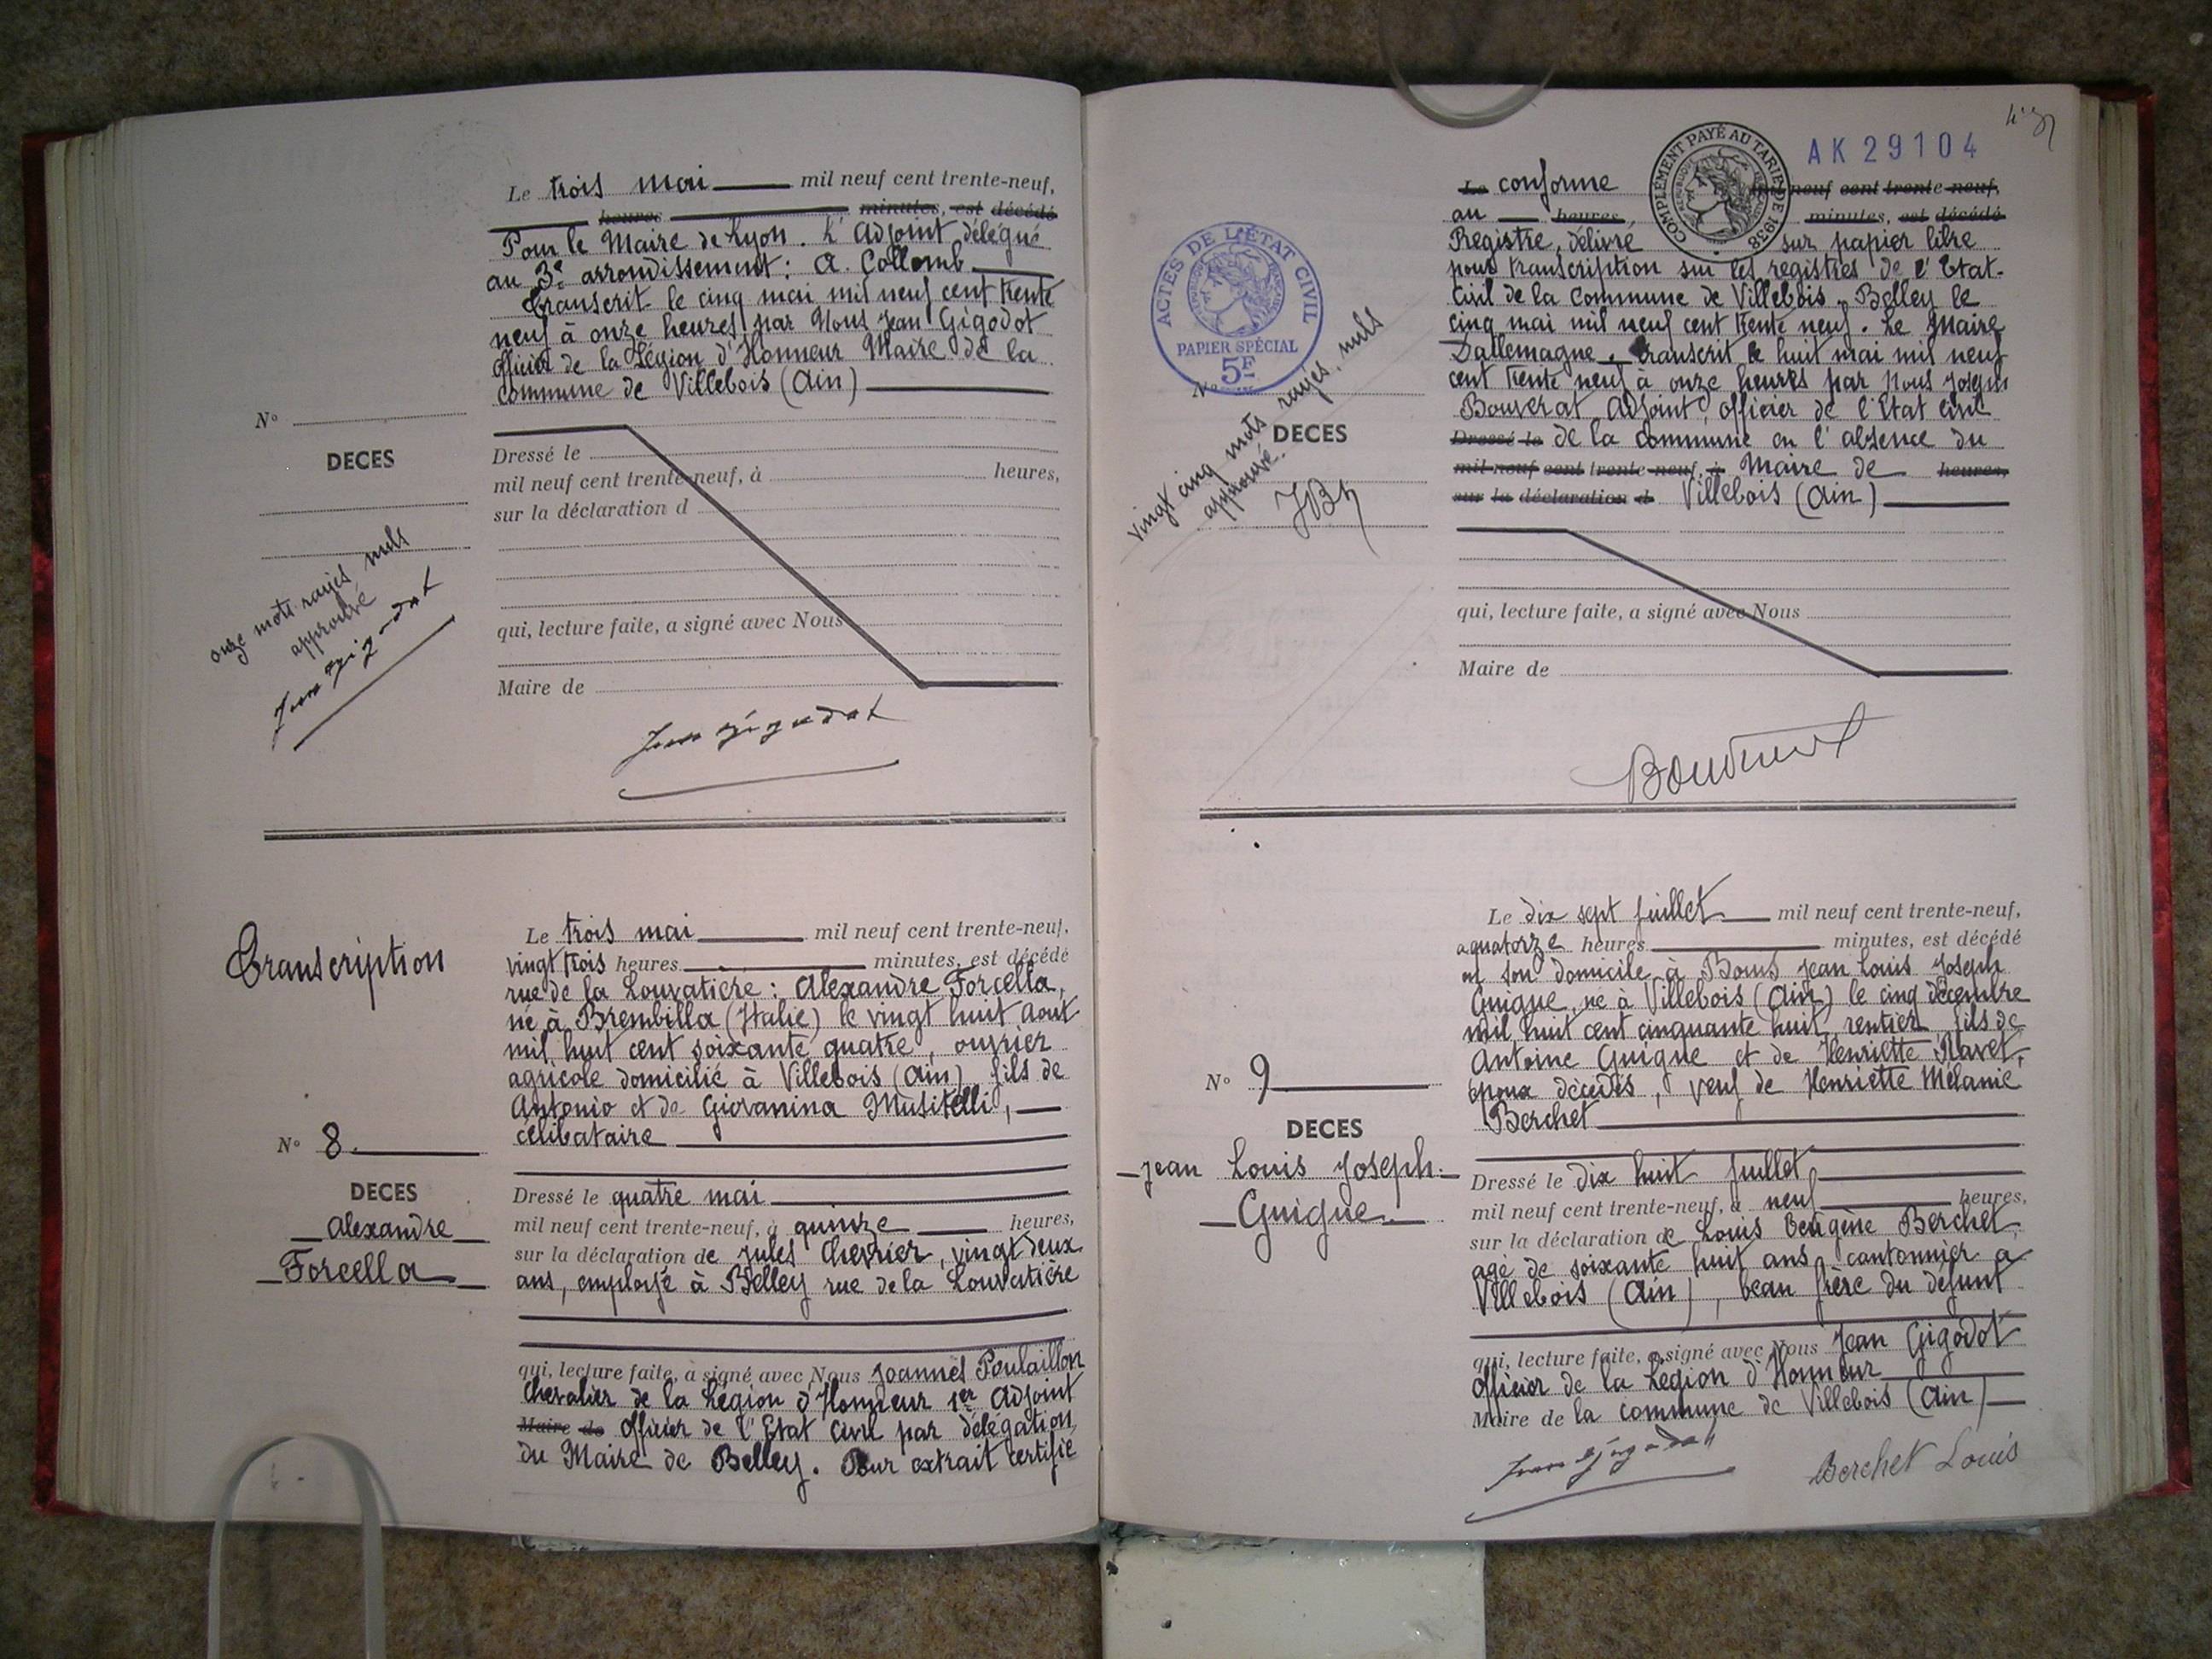 Le trois mai mil neuf cent trente-neuf,
heures minutes, est décédé
Pour le Maire de Lyon. L'Adjoint délégué
au 3e arrondissement : A. Collomb
Transcrit le cinq mai mil neuf cent trente
neuf à onze heures par Nous Jean Gigodot
Officier de la Légion d'Honneur Maire de la
commune de Villebois (Ain)
No
DECES
Dressé le
mil neuf cent trente-neuf, à heures,
sur la déclaration d
onze mots rayés nuls
approuvé
Jean Gigodot
qui, lecture faite, a signé avec Nous
Maire de
Jean Gigodot
Transcription
Le trois mai mil neuf cent trente-neuf,
vingt trois heures minutes, est décédé
rue de la Louvatière : Alexandre Forcella,
né à Brembilla (Italie) le vingt huit Aout
mil huit cent soixante quatre, ouvrier
agricole domicilié à Villebois (Ain) fils de
Antonio et de Giovanina Musitelli,
célibataire
No 8.
DECES
Alexandre
Forcella
Dressé le quatre mai
mil neuf cent trente-neuf, à quinze heures,
sur la déclaration de Jules Chevrier, vingt deux
ans, employé à Belley rue de la Louvatière
qui, lecture faite, a signé avec Nous Joannès Poulaillon
Chevalier de la Légion d'Honneur 1er Adjoint
Maire de Officier de l'Etat Civil par délégation
du Maire de Belley. Pour extrait certifié
AK 29104
COMPLÉMENT PAYÉ AU TARIF DE 1938
Le conforme neuf cent trente-neuf,
au heures, minutes, est décédé
Registre, délivré sur papier libre
pour transcription sur les registres de l'Etat-
Civil de la Commune de Villebois. Belley le
cinq mai mil neuf cent trente neuf. Le Maire
Dallemagne. Transcrit le huit mai mil neuf
cent trente neuf à onze heures par Nous Joseph
Bouverat Adjoint Officier de l'Etat Civil
Dressé le de la commune en l'absence du
mil neuf cent trente-neuf, à Maire de heures,
sur la déclaration d Villebois (Ain)
ACTES DE L'ÉTAT CIVIL
PAPIER SPÉCIAL
5F
No
DECES
vingt cinq mots rayés nuls
approuvé.
qui, lecture faite, a signé avec Nous
Maire de
Le dix sept juillet mil neuf cent trente-neuf,
a quatorze heures minutes, est décédé
en son domicile à Bouis Jean Louis Joseph
Guigue, né à Villebois (Ain) le cinq décembre
mil huit cent cinquante huit, rentier fils de
Antoine Guigue et de Henriette Ravet,
époux décédés, veuf de Henriette Mélanie
Berchet
No 9
DECES
Jean Louis Joseph
Guigue
Dressé le dix huit juillet
mil neuf cent trente-neuf, à neuf heures,
sur la déclaration de Louis Eugène Berchet,
agé de soixante huit ans cantonnier à
Villebois (Ain), beau frère du défunt
qui, lecture faite, a signé avec Nous Jean Gigodot
Officier de la Légion d'Honneur
Maire de la commune de Villebois (Ain)
Jean Gigodot
Berchet Louis